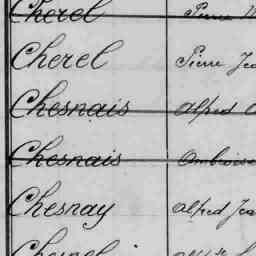 Cherel Pierre
Cherel Pierre Jea
Chesnais Alfred
Chesnais Ambroise
Chesnay Alfred Jea
Chesnel